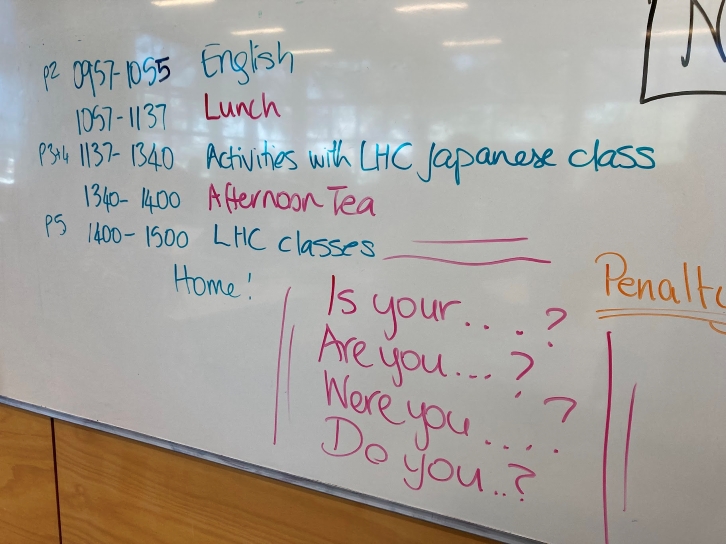 P2 0957-1055 English
1057-1137 Lunch
P3+4 1137-1340 Activities with LHC Japanese class
1340-1400 Afternoon Tea
P5 1400-1500 LHC classes
Home!
Is your....?
Are you....?
Were you....?
Do you..?
Penalty
N